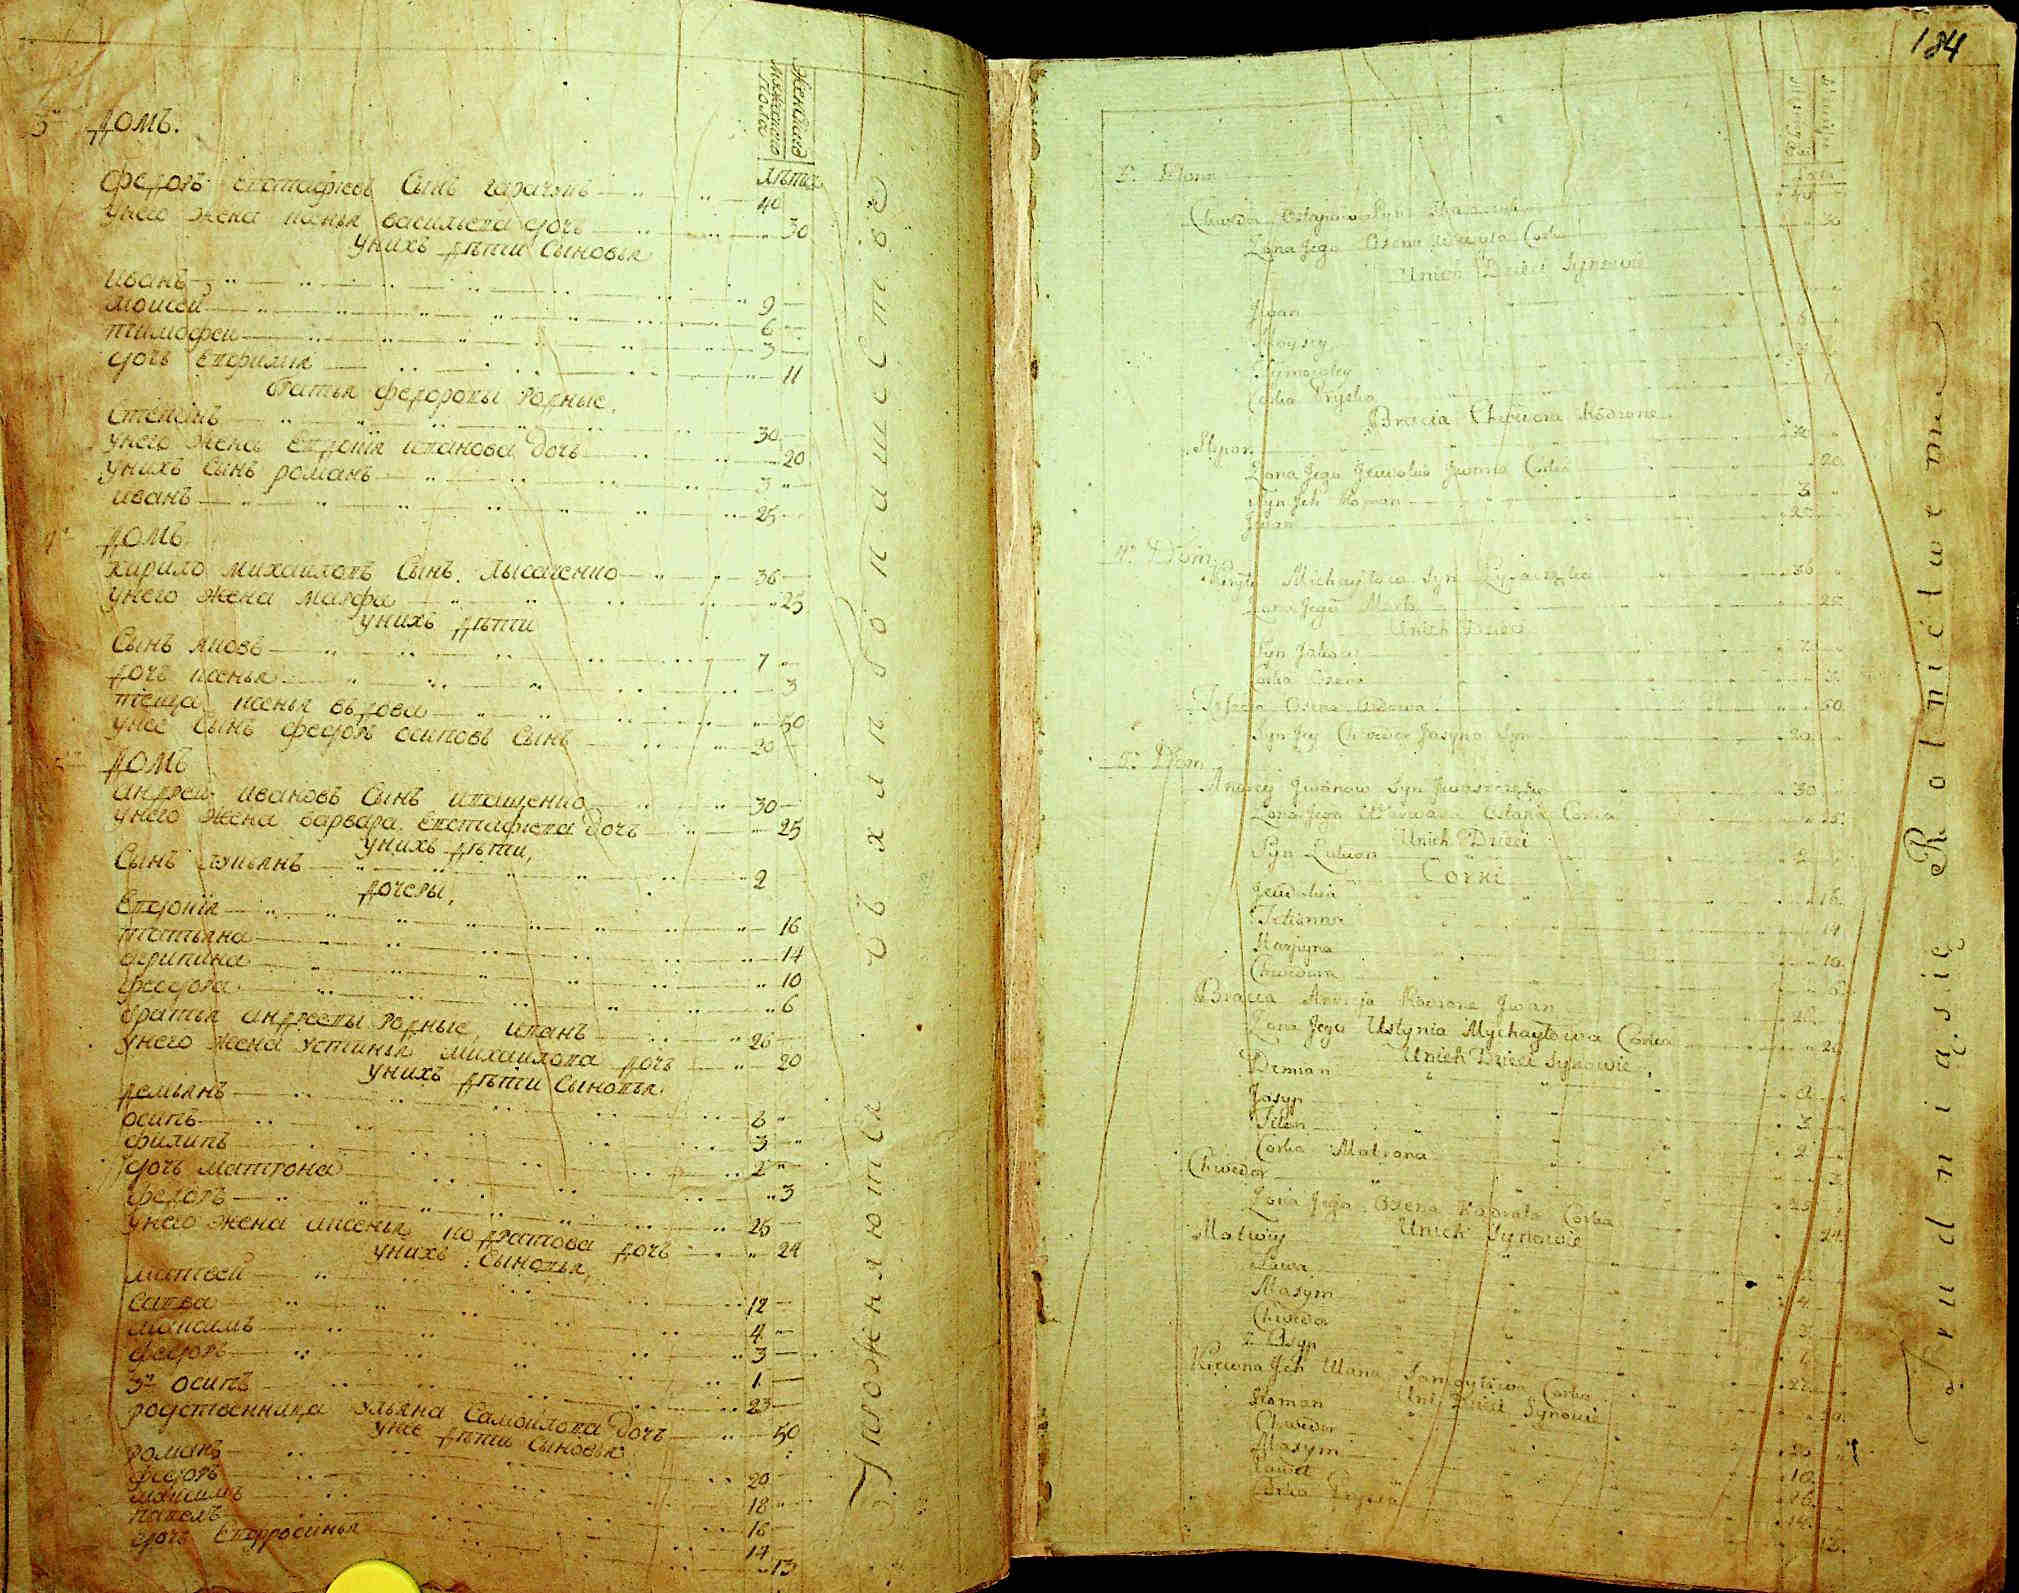 3й домъ.
Женска
мужеска
пола
лѣта
федоръ евстафiевъ Сынъ — 40
унего жена ксенья васильева дочь — 30
унихъ дѣти Сыновья
иванъ — 9
моисей — 6
тимофей — 3
дочь Евфимия — 11
братья федоровы родные.
Степанъ — 30
унего жена Евдокiя иванова дочь — 20
унихъ Сынъ романъ — 3
иванъ — 25
4й домъ
кирило михаиловъ Сынъ Лысаченко — 36
унего жена марфа — 25
унихъ дѣти
Сынъ яковъ — 7
дочь ксенья — 3
теща ксенья вдова — 50
унее Сынъ федоръ осиповъ Сынъ — 20
домъ
андрей ивановъ Сынъ иващенко — 30
унего жена варвара Евстафiева дочь — 25
унихъ дѣти,
Сынъ лукьянъ — 2
дочеры,
Евдокiя — 16
татьяна — 14
— 10
феодора — 6
братья андреевы родные, иванъ — 26
унего жена устинья михаилова дочь — 20
унихъ дѣти Сыновья.
демьянъ — 6
осипъ — 3
филипъ — 2
дочь матрона — 3
федоръ — 25
унего жена аксенья кондратова дочь — 24
унихъ Сыновья,
матвей — 12
Савва — 4
максимъ — 3
федоръ — 1
3й осипъ — 23
родственница ульяна Самойлова дочь — 50
унее дѣти Сыновья
романъ — 20
федоръ — 18
максимъ — 16
павелъ — 14
дочь Евфросинья — 13
Упражняются въ хлѣбопашествѣ
184
3. Dom
40
Chwedor Ostapow Syn
Zona Jego Osena Wasyla Corka — 30
Unich Dzieci Synowie
Jwan
Moysey — 6
Tymofiey
Corka Pryska
Bracia Chwedora Rodzone
Stepan — 30
Zona Jego Jewdokia Jwanna Corka — 20
Syn Jch Roman — 3
Jwan — 25
4. Dom
Kiryło Michayłow Syn — 36
Zona Jego Marta — 25
Unich Dzieci
Syn Jakow — 7
Corka Osena — 3
Osena Wdowa — 50
Syn Jey Chwedor Josypow Syn — 20
5. Dom
Andrey Jwanow Syn — 30
Zona Jego Warwara Ostapa Corka — 25
Unich Dzieci
Syn Lukian — 2
Corki
Jewdokia — 16
Tetianna — 14
Maryna — 10
Chwedora — 6
Bracia Andreja Rodzone Jwan — 26
Zona Jego Ustynia Mychayłowa Corka — 20
Unich Dzieci Synowie
Demian — 6
Josyp — 3
Filip — 2
Corka Matrona — 3
Chwedor — 25
Zona Jego Osena Kodrata Corka — 24
Unich Synowie
Matwiy
Sawa — 4
Maxym — 3
Chwedor — 1
3. Osyp — 23
Krewna Jch Ulana Samoyłowa Corka — 50
Uniy Dzieci Synowie
Roman — 20
Chwedor — 18
Maxym — 16
Paweł — 14
Corka Pryska — 13
Trudniąsię Rolnictwem